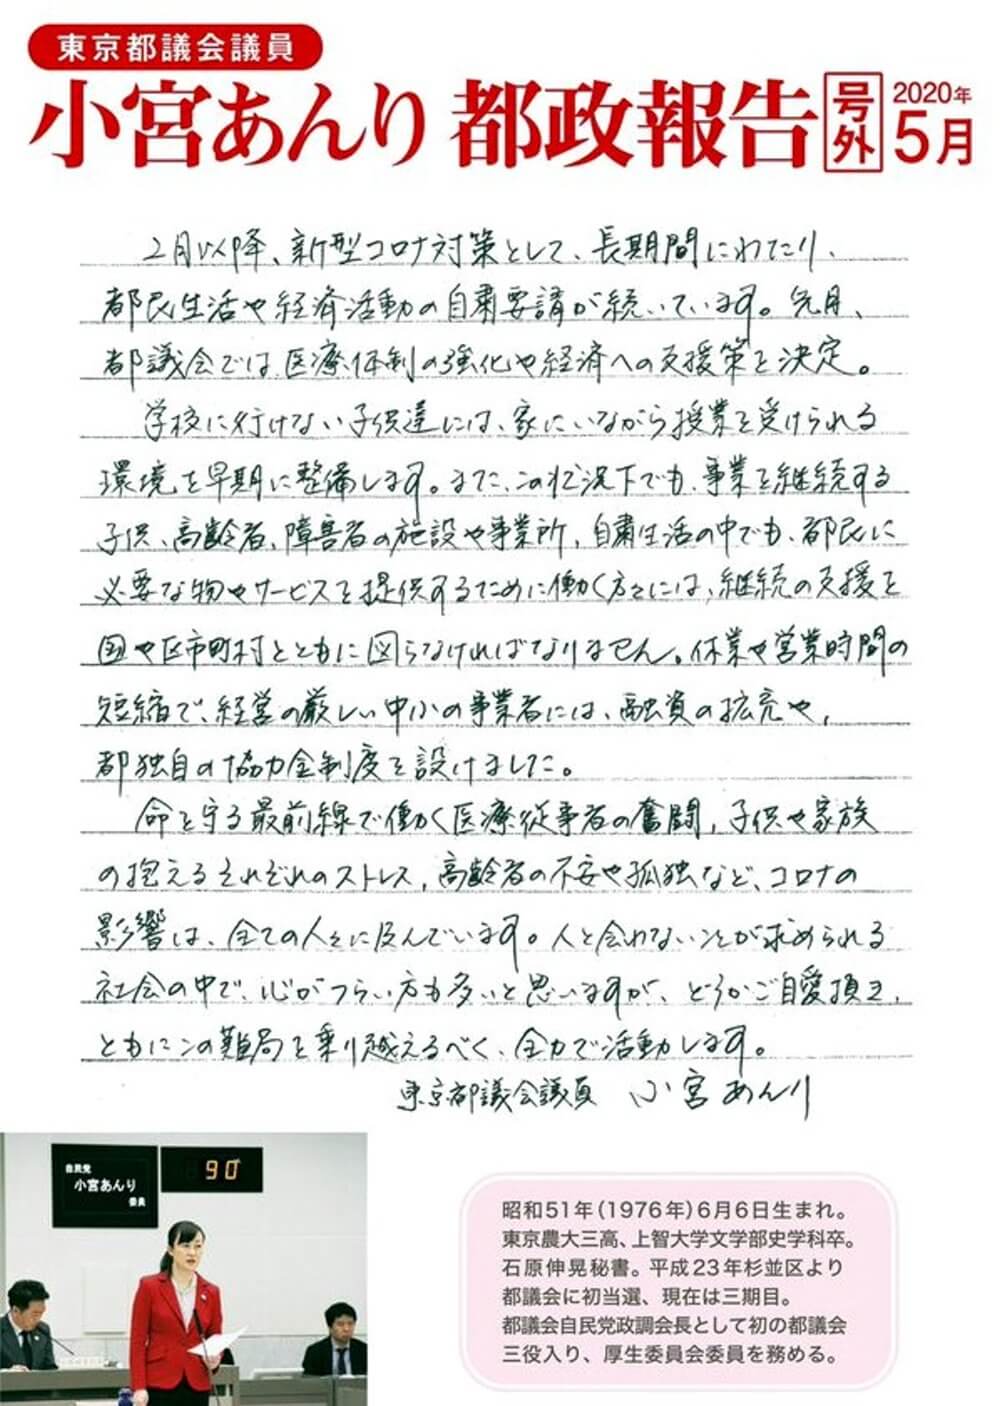 東京都議会議員
小宮あんり 都政報告 号外 2020年 5月
2月以降、新型コロナ対策として、長期間にわたり、
都民生活や経済活動の自粛要請が続いています。先月、
都議会では、医療体制の強化や経済への支援策を決定。
学校に行けない子供達には、家にいながら授業を受けられる
環境を早期に整備します。また、この状況下でも、事業を継続する
子供、高齢者、障害者の施設や事業所、自粛生活の中でも、都民に
必要な物やサービスを提供するために働く方々には、継続の支援を
国や区市町村とともに図らなければなりません。休業や営業時間の
短縮で、経営の厳しい中小の事業者には、融資の拡充や、
都独自の協力金制度を設けました。
命を守る最前線で働く医療従事者の奮闘、子供や家族
の抱えるそれぞれのストレス、高齢者の不安や孤独など、コロナの
影響は、全ての人々に及んでいます。人と会わないことが求められる
社会の中で、心がつらい方も多いと思いますが、どうかご自愛頂き、
ともにこの難局を乗り越えるべく、全力で活動します。
東京都議会議員 小宮あんり
自民党
小宮あんり
委員
90
昭和51年(1976年)6月6日生まれ。
東京農大三高、上智大学文学部史学科卒。
石原伸晃秘書。平成23年杉並区より
都議会に初当選、現在は三期目。
都議会自民党政調会長として初の都議会
三役入り、厚生委員会委員を務める。